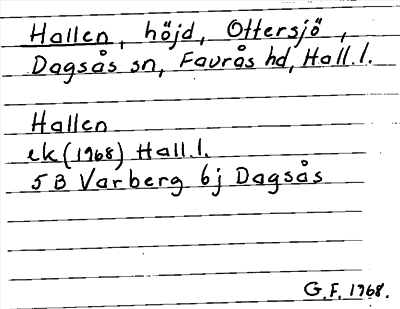 Hallen, höjd, Ottersjö,
Dagsås sn, Faurås hd, Hall.l.
Hallen
ek (1968) Hall.l.
5B Varberg 6j Dagsås
G.F. 1968.